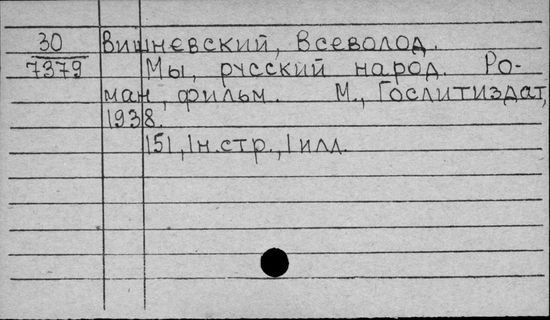 30 Вишневский, Всеволод.
7379 Мы, русский народ. Ро-
ман, фильм. М., Гослитиздат,
1938.
151, 1н.стр., 1 илл.